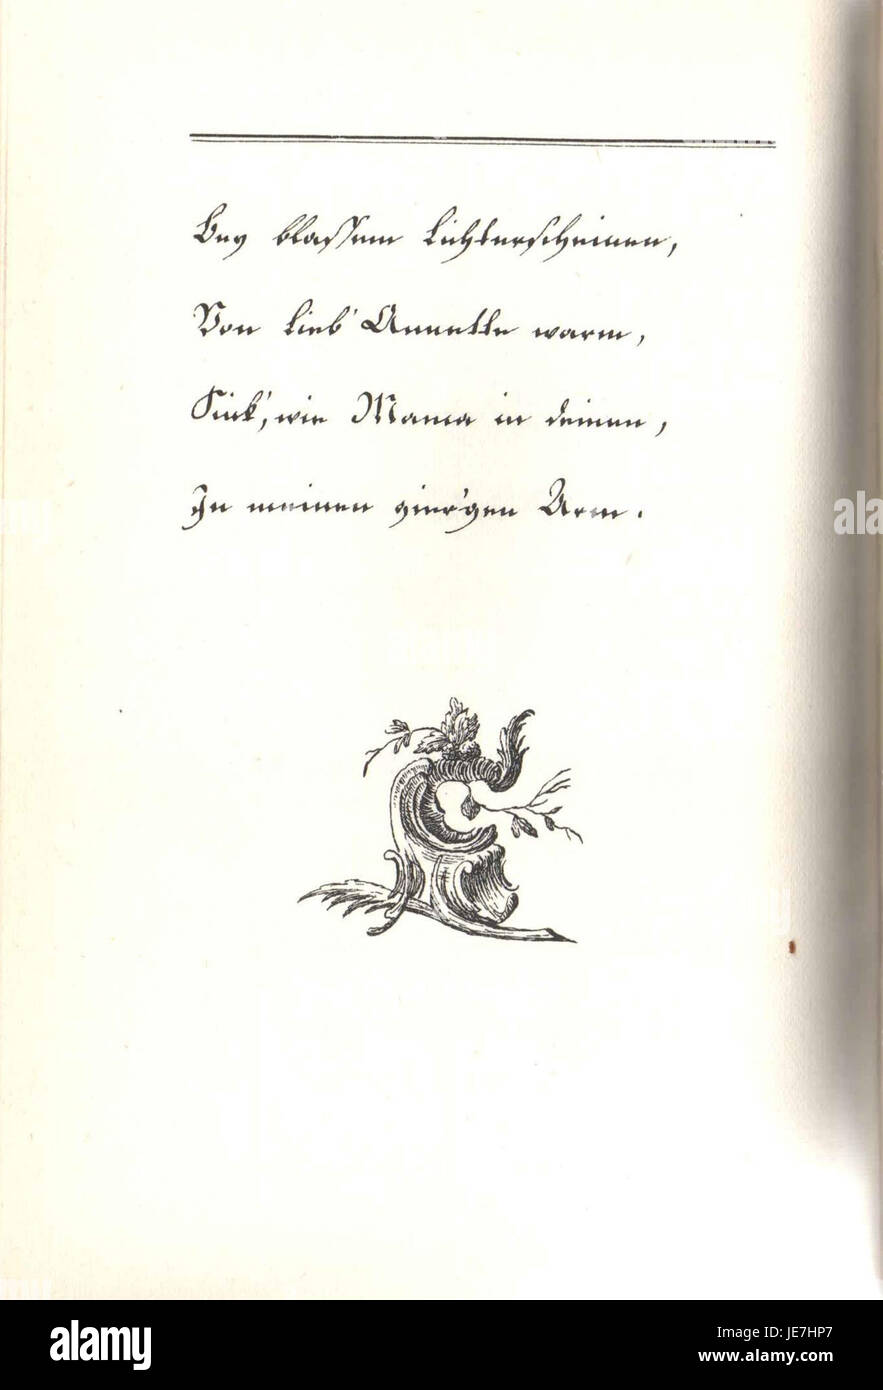 Bey blassem Lichterscheinen,
Von Lieb' Annette warm,
Sink', wie Mama in deinen,
In meinen gier'gen Arm.
a
alamy
Image ID: JE7HP7
www.alamy.com